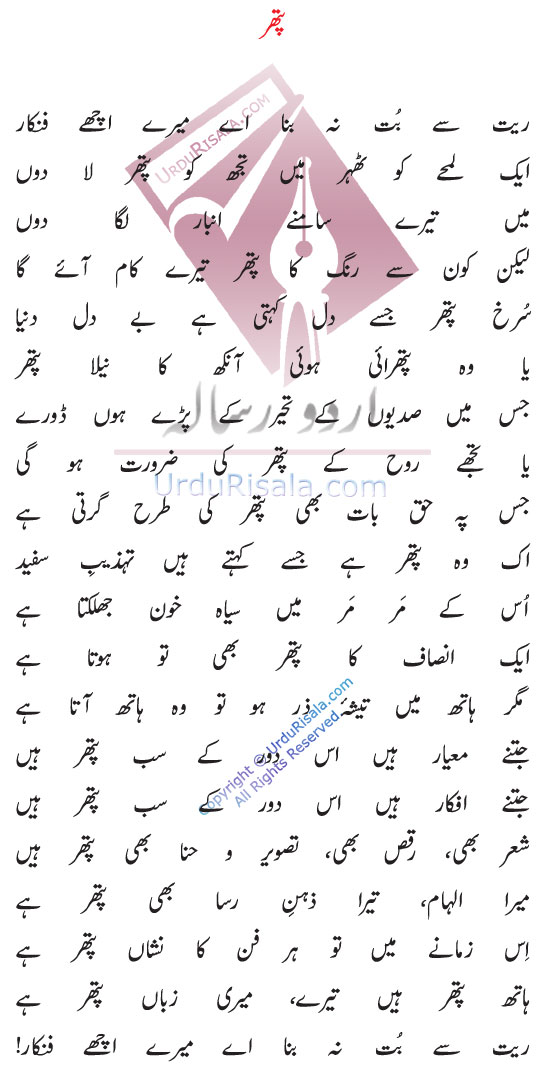 پتھر
ریت سے بُت نہ بنا اے میرے اچھے فنکار
ایک لمحے کو ٹھہر میں تجھ کو پتھر لا دوں
میں تیرے سامنے انبار لگا دوں
لیکن کون سے رنگ کا پتھر تیرے کام آئے گا
سُرخ پتھر جسے دل کہتی ہے بے دل دنیا
یا وہ پتھرائی ہوئی آنکھ کا نیلا پتھر
جس میں صدیوں کے تحیر کے پڑے ہوں ڈورے
یا تجھے روح کے پتھر کی ضرورت ہو گی
جس پہ حق بات بھی پتھر کی طرح گرتی ہے
اک وہ پتھر ہے جسے کہتے ہیں تہذیبِ سفید
اُس کے مَر مَر میں سیاہ خون جھلکتا ہے
ایک انصاف کا پتھر بھی تو ہوتا ہے
مگر ہاتھ میں تیشۂ ذر ہو تو وہ ہاتھ آتا ہے
جتنے معیار ہیں اس دور کے سب پتھر ہیں
جتنے افکار ہیں اس دور کے سب پتھر ہیں
شعر بھی، رقص بھی، تصویر و حنا بھی پتھر ہیں
میرا الہام، تیرا ذہنِ رسا بھی پتھر ہے
اِس زمانے میں تو ہر فن کا نشاں پتھر ہے
ہاتھ پتھر ہیں تیرے، میری زباں پتھر ہے
ریت سے بُت نہ بنا اے میرے اچھے فنکار!
URDURISALA.COM
اردو رسالہ
UrduRisala.com
Copyright © UrduRisala.com
All Rights Reserved